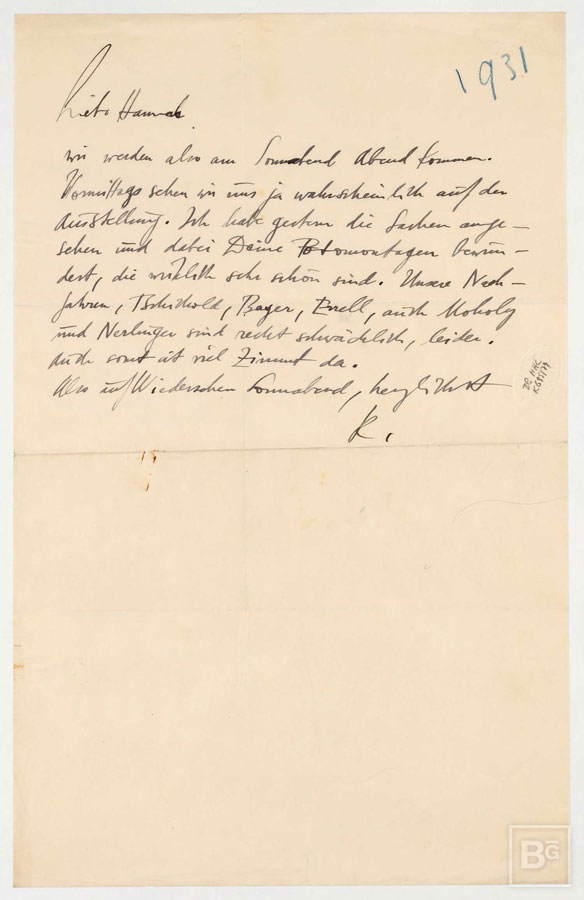 1931
Liebe Hannah
wir werden also am Sonnabend Abend kommen.
Vormittags sehen wir uns ja wahrscheinlich auf der
Ausstellung. Ich habe gestern die Sachen ange-
sehen und dabei Deine Fotomontagen bewun-
dert, die wirklich sehr schön sind. Unsere Nach-
fahren, Tschichold, Bayer, Errell, auch Moholy
und Nerlinger sind recht schwächlich, leider.
Auch sonst ist viel Zimmt da.
Also auf Wiedersehen Sonnabend, herzlichst
R.
BG